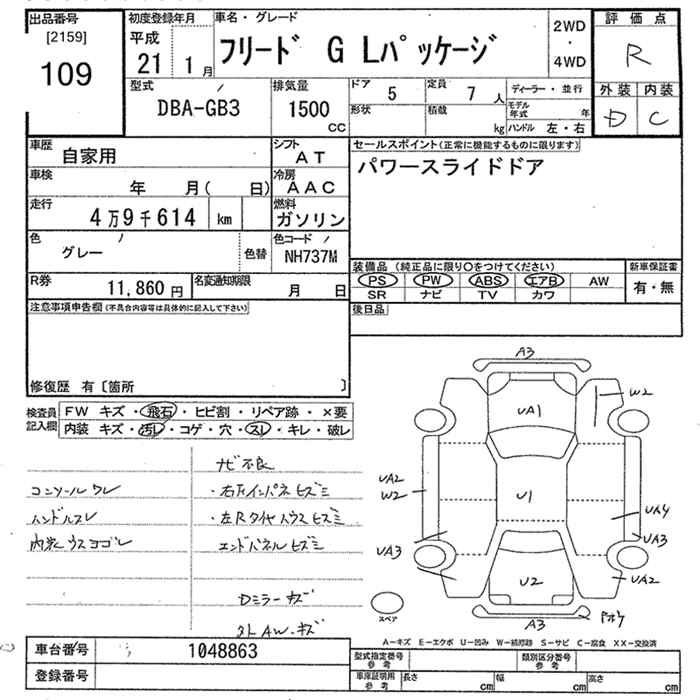 出品番号 初度登録年月 車名・グレード 2WD・4WD 評価点
[2159] 109 平成 21 1月 フリード G Lパッケージ R
型式 排気量 ドア 5 定員 7人 ディーラー・並行 外装 内装
DBA-GB3 1500 cc 形状 積載 kg モデル年式 年 ハンドル 左・右 D C
車歴 自家用 シフト AT セールスポイント(正常に機能するものに限ります)
車検 年 月( 日) 冷房 AAC パワースライドドア
走行 4万9千614 km 燃料 ガソリン
色 グレー 色替 色コード NH737M
装備品 (純正品に限り○をつけてください) 新車保証書
R券 11,860円 名変通知期限 月 日 PS PW ABS エアB AW 有・無
SR ナビ TV カワ
注意事項申告欄(不具合内容等は具体的に記入して下さい) 後日品
修復歴 有〔箇所 〕
検査員記入欄 FW キズ・飛石・ヒビ割・リペア跡・×要
内装 キズ・汚レ・コゲ・穴・スレ・キレ・破レ
ナビ不良
コンソールワレ ・右Fインパネヒズミ
ハンドルスレ ・左Rタイヤハウスヒズミ
内装ウスヨゴレ エンドパネルヒズミ
Dミラーキズ
AW.キズ
A3
UA1
W2
UA2
W2
U1
UA4
UA3
UA3
U2
UA2
A3
スペア
A-キズ E-エクボ U-凹み W-補修跡 S-サビ C-腐食 XX-交換済
車台番号 1048863 型式指定番号 参考 類別区分番号 参考
登録番号 車庫証明用 参考 長さ cm 幅 cm 高さ cm